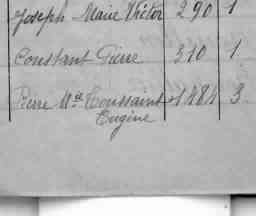 Joseph Marie Victor 290 1
Constant Pierre 310 1
Pierre Mie Toussaint 1484 3
Eugène